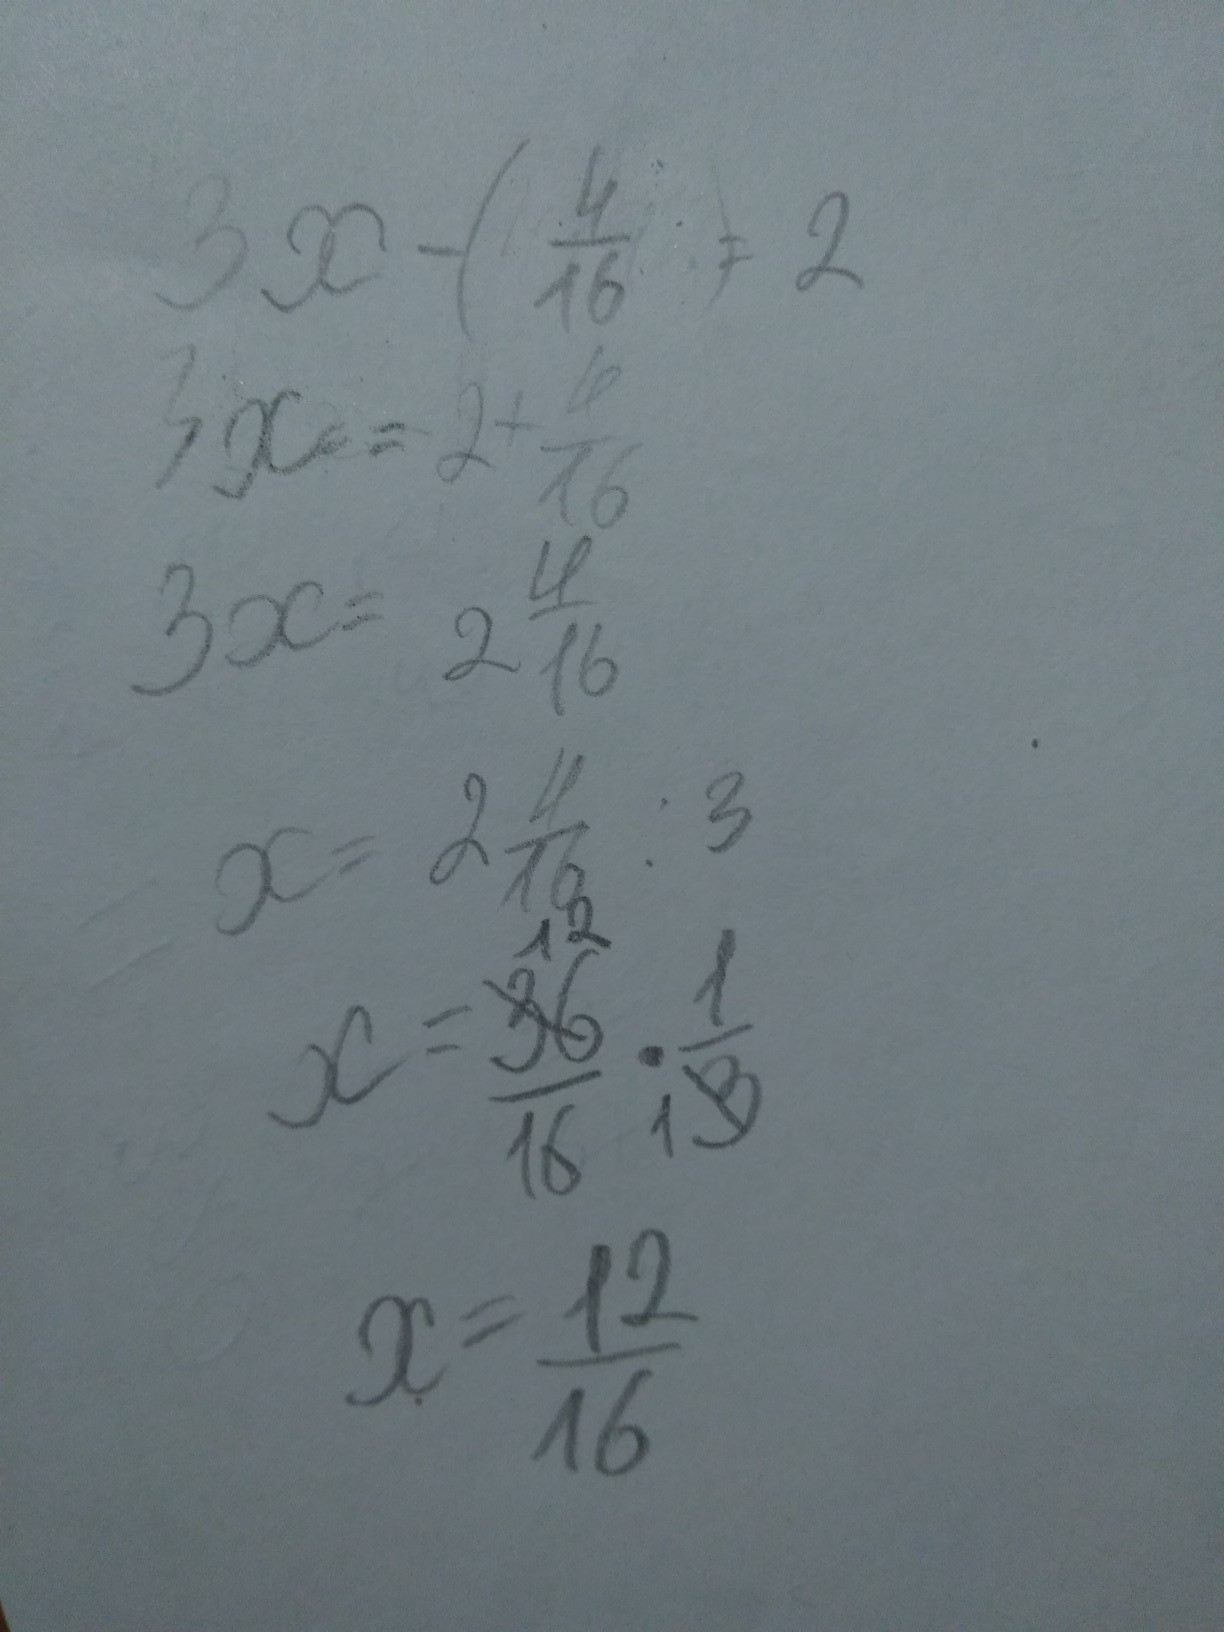 3x - ( 4/16 ) = 2
3x = 2 + 4/16
3x = 2 4/16
x = 2 4/16 : 3
12
x = 36/16 · 1/3
1
x = 12/16